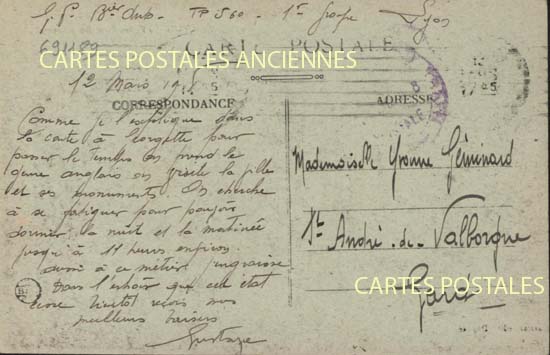 Lyon
CARTE POSTALE
CARTES POSTALES ANCIENNES
12 Mars
CORRESPONDANCE
ADRESSE
Comme je l'explique dans
la carte à Georgette pour
passer le temps on prend le
genre anglais on visite la ville
et ses monuments. On cherche
à se fatiguer pour pouvoir
dormir la nuit et la matinée
jusqu'à 11 heures environ.
à ce métier
Dans l'espoir que cet état
bientôt reçois mes
meilleurs baisers
Gustave
Mademoiselle Yvonne Géminard
St André-de-Valborgne
Gard
CARTES POSTALES